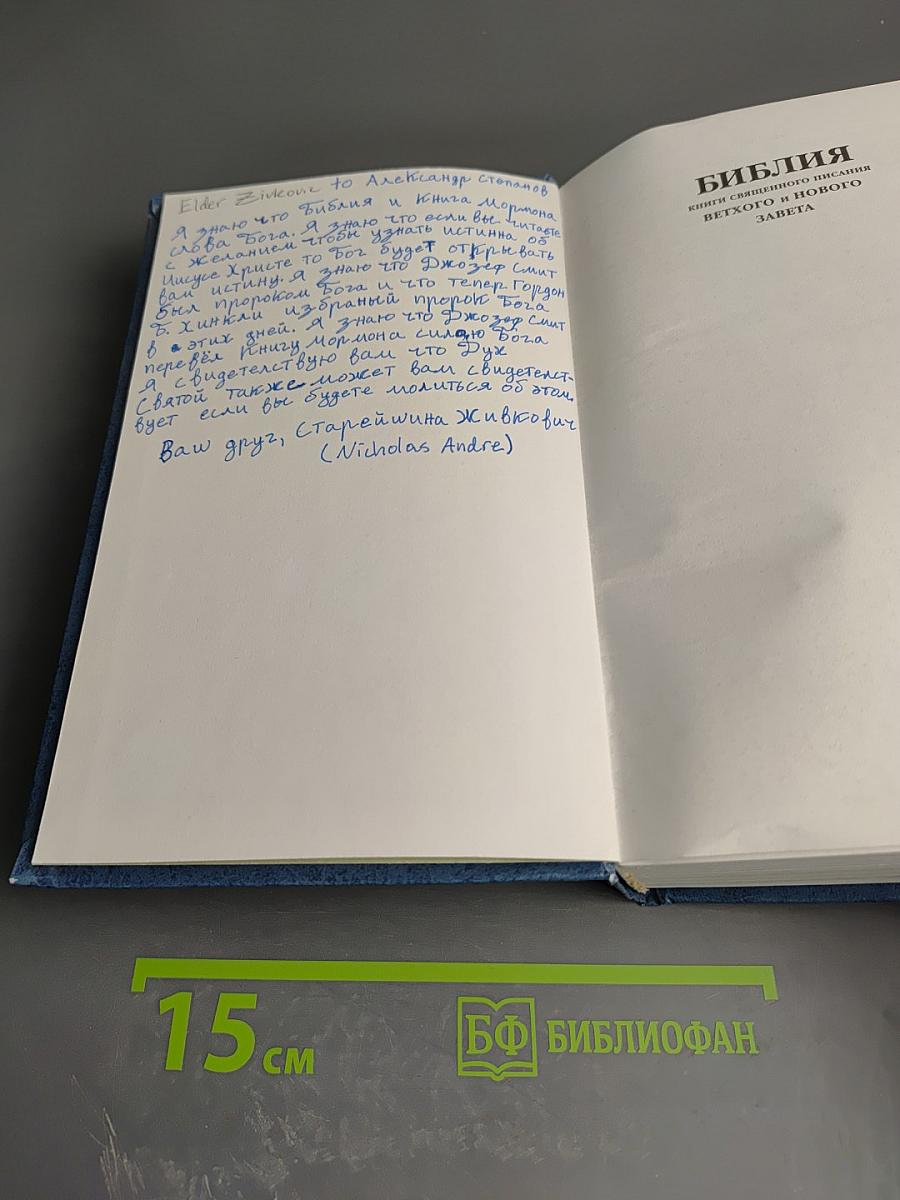 Elder Zivkovic to Александр Степанов
Я знаю что Библия и Книга Мормона
слова Бога. Я знаю что если вы читаете
с желанием чтобы узнать истинна об
Иисусе Христе то Бог будет открывать
вам истину. Я знаю что Джозеф Смит
был пророком Бога и что тепер Гордон
Б. Хинкли избраный пророк Бога
в этих дней. Я знаю что Джозеф Смит
перевёл Книгу Мормона силою Бога
Я свидетелствую вам что Дух
Святой также может вам свидетелст-
вует если вы будете молиться об этом.
Ваш друг, Старейшина Живкович
(Nicholas Andre)
БИБЛИЯ
КНИГИ СВЯЩЕННОГО ПИСАНИЯ
ВЕТХОГО И НОВОГО
ЗАВЕТА
15 см
БФ БИБЛИОФАН